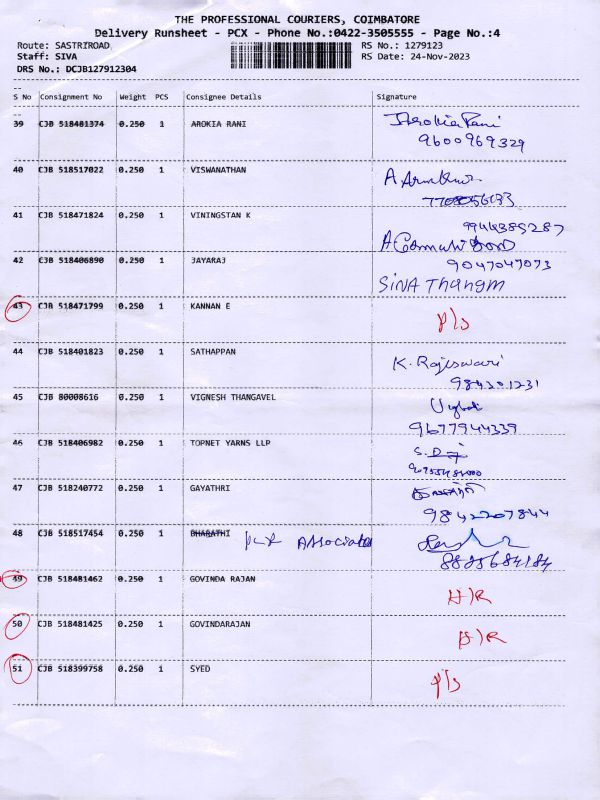 THE PROFESSIONAL COURIERS, COIMBATORE
Delivery Runsheet - PCX - Phone No.:0422-3505555 - Page No.:4
Route: SASTRIROAD RS No.: 1279123
Staff: SIVA RS Date: 24-Nov-2023
DRS No.: DCJB127912304
S No Consignment No Weight PCS Consignee Details Signature
39 CJB 518481374 0.250 1 AROKIA RANI Arokia Rani
9600969329
40 CJB 518517022 0.250 1 VISWANATHAN A
41 CJB 518471824 0.250 1 VININGSTAN K 9944385287
42 CJB 518406890 0.250 1 JAYARAJ 9047047073
SIVA Thangm
43 CJB 518471799 0.250 1 KANNAN E P/s
44 CJB 518401823 0.250 1 SATHAPPAN K. Rajeswari
984301231
45 CJB 80008616 0.250 1 VIGNESH THANGAVEL
9677944339
46 CJB 518406982 0.250 1 TOPNET YARNS LLP S.
47 CJB 518240772 0.250 1 GAYATHRI
9842207844
48 CJB 518517454 0.250 1 BHARATHI Associates
8825684184
49 CJB 518481462 0.250 1 GOVINDA RAJAN H)R
50 CJB 518481425 0.250 1 GOVINDARAJAN H)R
51 CJB 518399758 0.250 1 SYED P/s